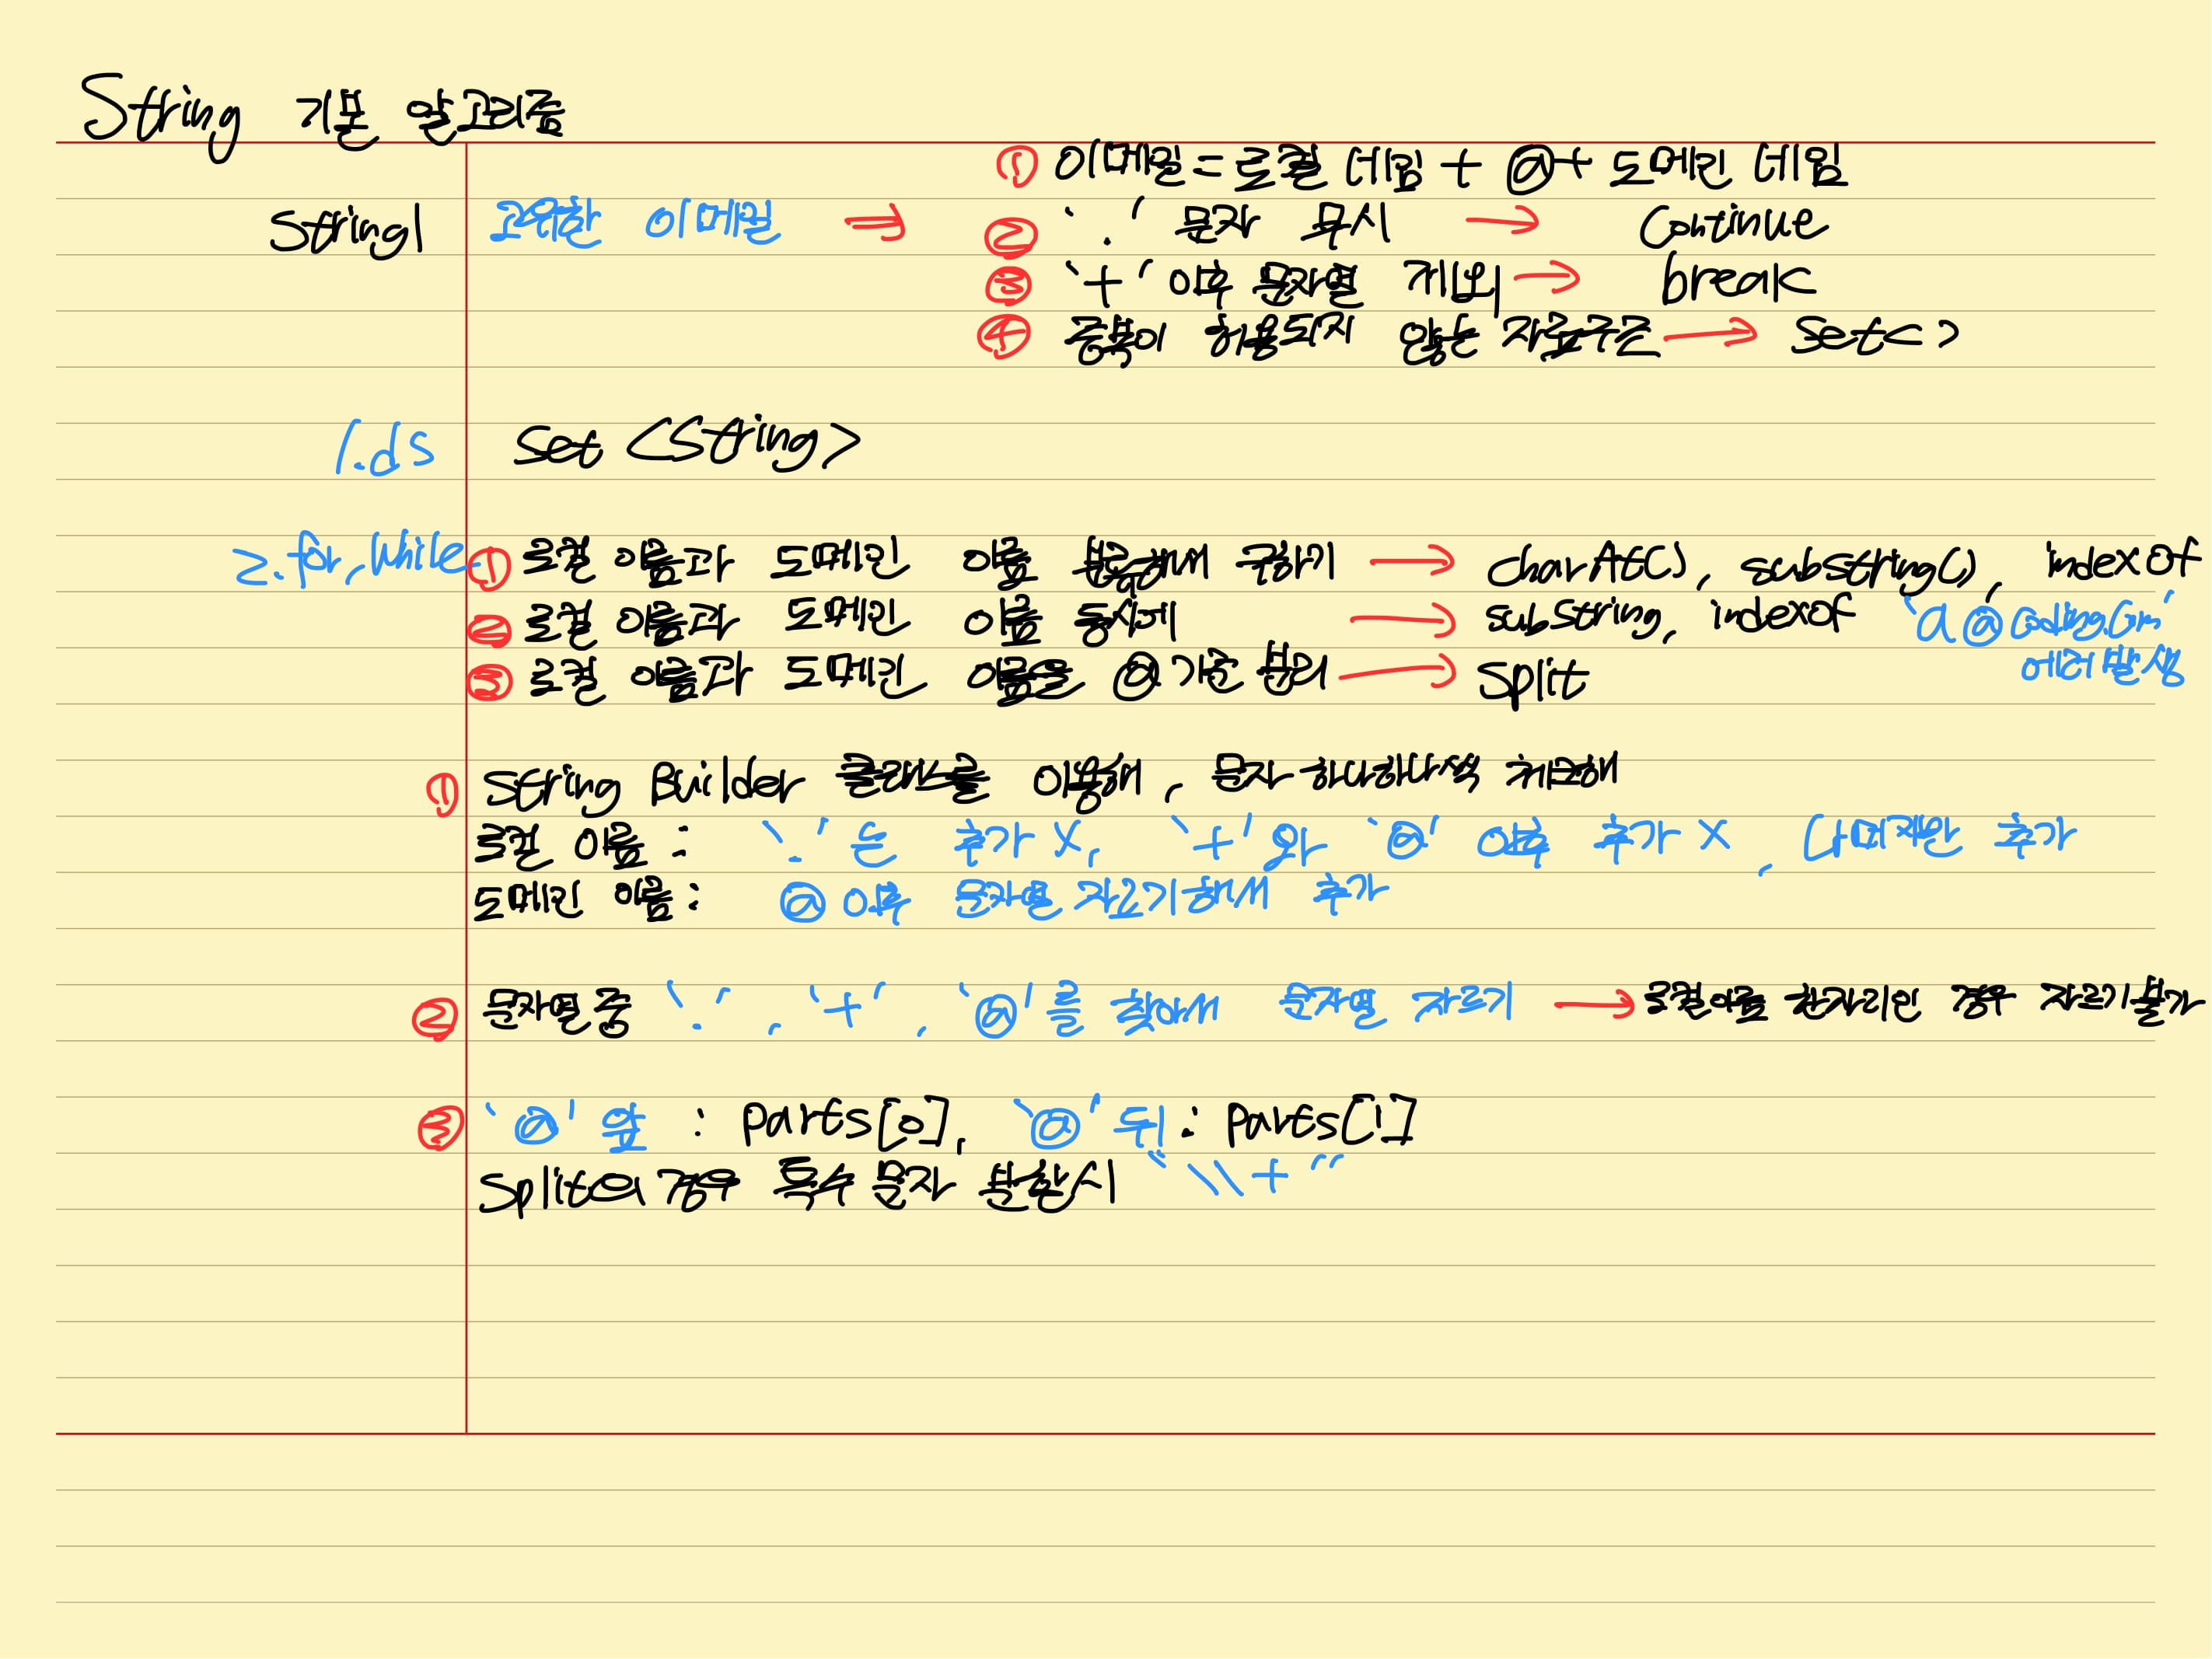 String 기본 알고리즘
① 이메일 = 로컬 네임 + @ + 도메인 네임
String1 고유한 이메일 ⇒ ② '.' 문자 무시 → Continue
③ '+' 이후 문자열 제외 → break
④ 중복이 허용되지 않는 자료구조 → Set<>
1. ds Set <String>
2. for, while ① 로컬 이름과 도메인 이름 분리해서 구하기 → charAt(), substring(), indexOf
② 로컬 이름과 도메인 이름 동시에 → substring, indexOf 'a@coding.com'
에러 발생
③ 로컬 이름과 도메인 이름을 @기준 분리 → Split
① String Builder 클래스를 이용해, 문자 하나하나씩 체크해
로컬 이름 : '.'는 추가 X, '+'와 '@' 이후 추가 X, 나머지만 추가
도메인 이름 : @ 이후 문자열 자르기해서 추가
② 문자열 중 '.', '+', '@'를 찾아서 문자열 자르기 → 로컬이름 한자리인 경우 자르기 불가
③ '@' 앞 : Parts[0], '@' 뒤 : Parts[1]
Split의 경우 특수 문자 분할시 "\\+"